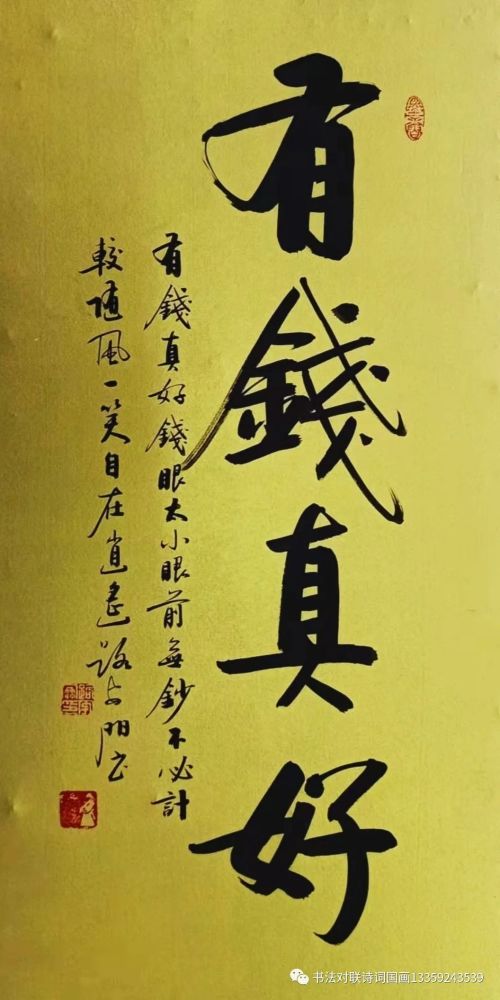 有錢真好
有錢真好錢眼太小眼前無鈔不必計
較随風一笑自在逍遙路安明书
书法对联诗词国画13359243539